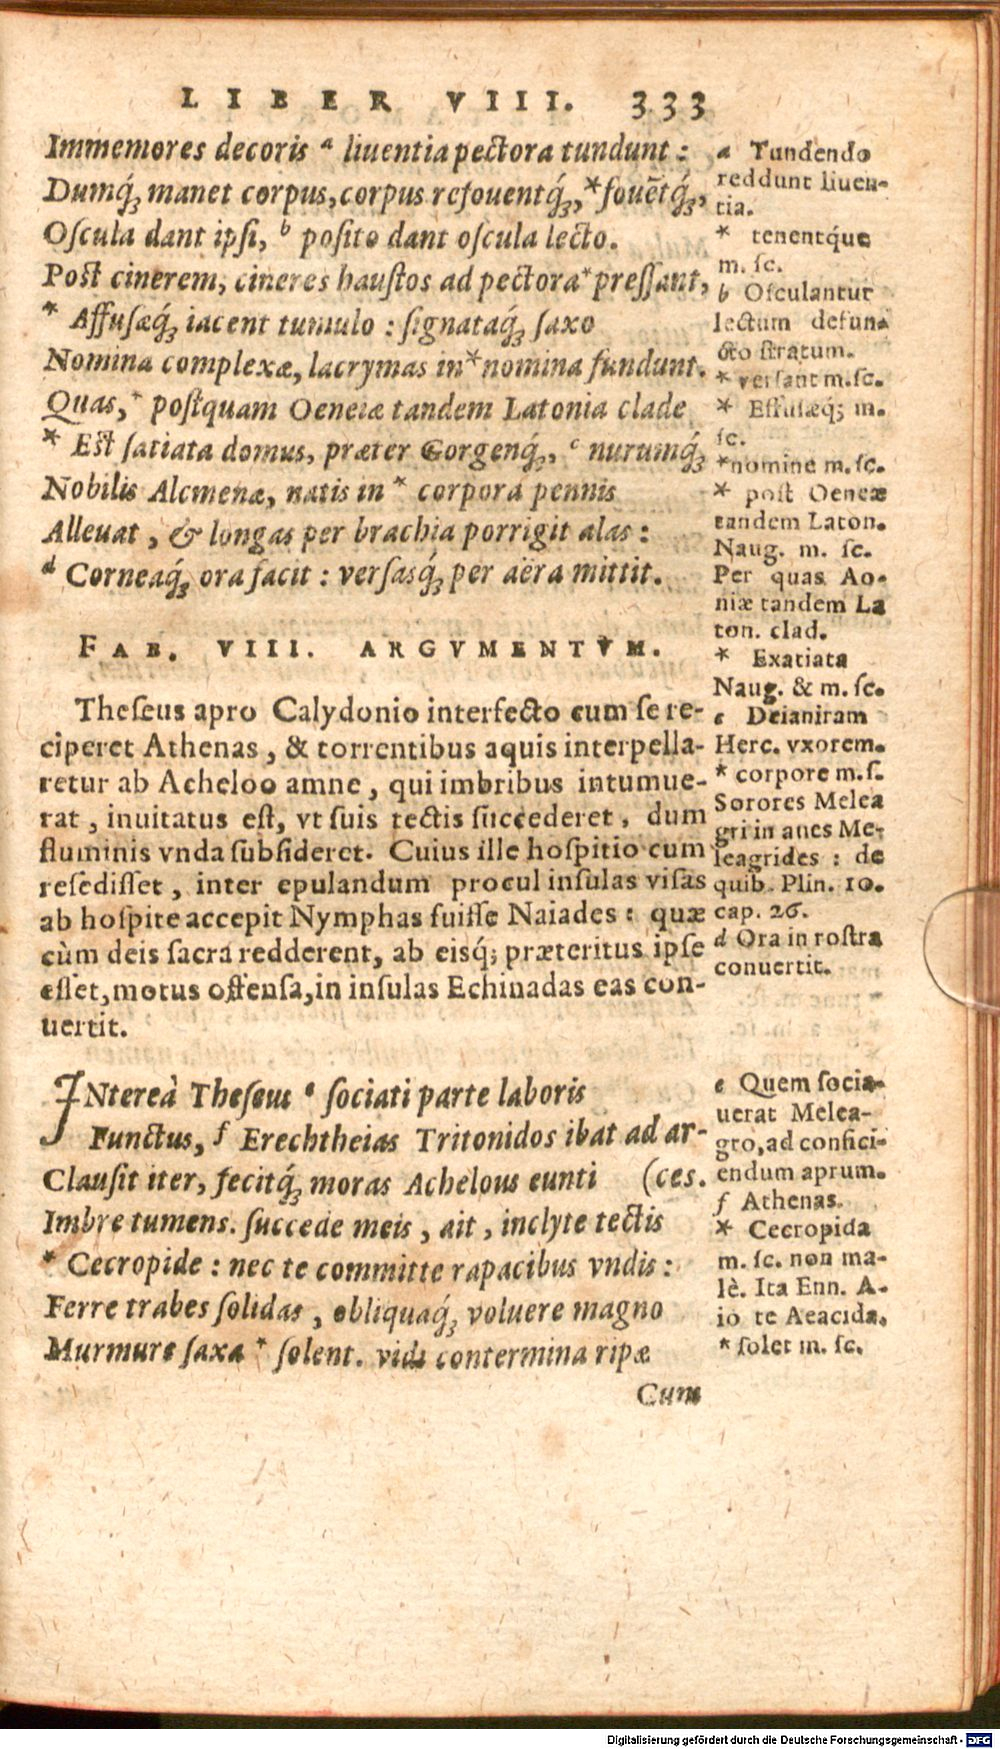 LIBER VIII. 333
Immemores decoris ᵃ liuentia pectora tundunt:
Dumq́ꝫ manet corpus, corpus refouentq́ꝫ, *fouētq́ꝫ,
Oſcula dant ipſi, ᵇ poſito dant oſcula lecto.
Poſt cinerem, cineres hauſtos ad pectora *preſſant,
* Affuſæq́ꝫ iacent tumulo: ſignataq́ꝫ ſaxo
Nomina complexæ, lacrymas in *nomina fundunt.
Quas, * poſtquam Oeneiæ tandem Latonia clade
* Eſt ſatiata domus, præter Gorgenq́ꝫ, ᶜ nurumq́ꝫ
Nobilis Alcmenæ, natis in * corpora pennis
Alleuat, & longas per brachia porrigit alas:
ᵈ Corneaq́ꝫ ora facit: verſasq́ꝫ per aëra mittit.
FAB. VIII. ARGVMENTVM.
Theſeus apro Calydonio interfecto cum ſe re-
ciperet Athenas, & torrentibus aquis interpella-
retur ab Acheloo amne, qui imbribus intumue-
rat, inuitatus eſt, vt ſuis tectis ſuccederet, dum
fluminis vnda ſubſideret. Cuius ille hoſpitio cum
reſediſſet, inter epulandum procul inſulas viſas
ab hoſpite accepit Nymphas fuiſſe Naiades: quæ
cùm deis ſacra redderent, ab eisq́; præteritus ipſe
eſſet, motus oſtenſa, in inſulas Echinadas eas con-
uertit.
INtereà Theſeus ᵉ ſociati parte laboris
Functus, ᶠ Erechtheias Tritonidos ibat ad ar-
Clauſit iter, fecitq́ꝫ moras Achelous eunti (ces.
Imbre tumens. ſuccede meis, ait, inclyte tectis
* Cecropide: nec te committe rapacibus vndis:
Ferre trabes ſolidas, obliquaq́ꝫ voluere magno
Murmure ſaxa * ſolent. vidi contermina ripæ
Cum
a Tundendo
reddunt liuen-
tia.
* tenentq́ue
m. ſc.
b Oſculantur
lectum defun-
cto ſtratum.
* verſant m. ſc.
* Effuſæq; m.
ſc.
*nomine m. ſc.
* poſt Oeneæ
tandem Laton.
Naug. m. ſc.
Per quas Ao-
niæ tandem La
ton. clad.
* Exatiata
Naug. & m. ſc.
c Deianiram
Herc. vxorem.
* corpore m. ſ.
Sorores Melea
gri in aues Me-
leagrides: de
quib. Plin. 10.
cap. 26.
d Ora in roſtra
conuertit.
e Quem ſocia-
uerat Melea-
gro, ad confici-
endum aprum.
f Athenas.
* Cecropida
m. ſc. non ma-
lè. Ita Enn. A-
io te Aeacida.
* ſolet m. ſc.
Digitalisierung gefördert durch die Deutsche Forschungsgemeinschaft - DFG